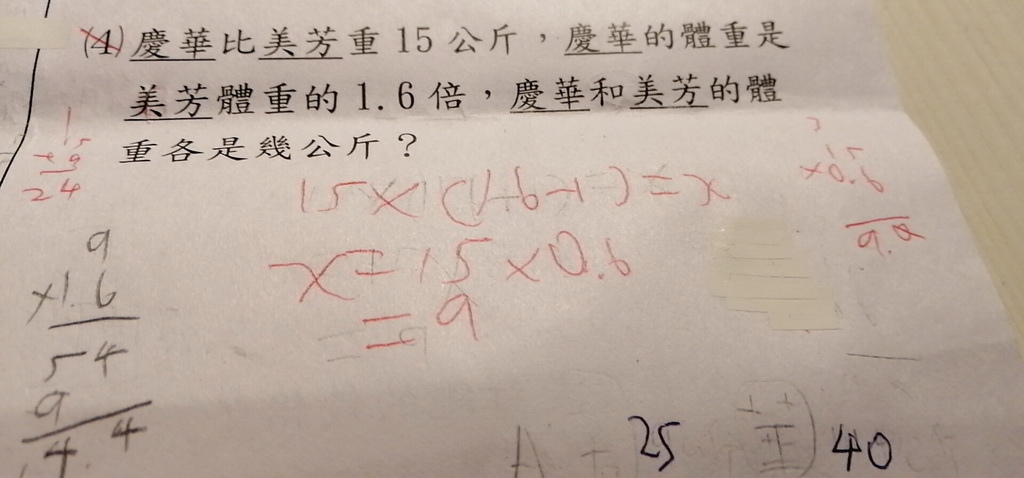 (4) 慶華比美芳重15公斤，慶華的體重是
美芳體重的1.6倍，慶華和美芳的體
重各是幾公斤？
15×(1.6-1)=x
x=15×0.6
=9
15
+9
24
9
×1.6
54
9
4.4
15
×0.6
9.0
25
40